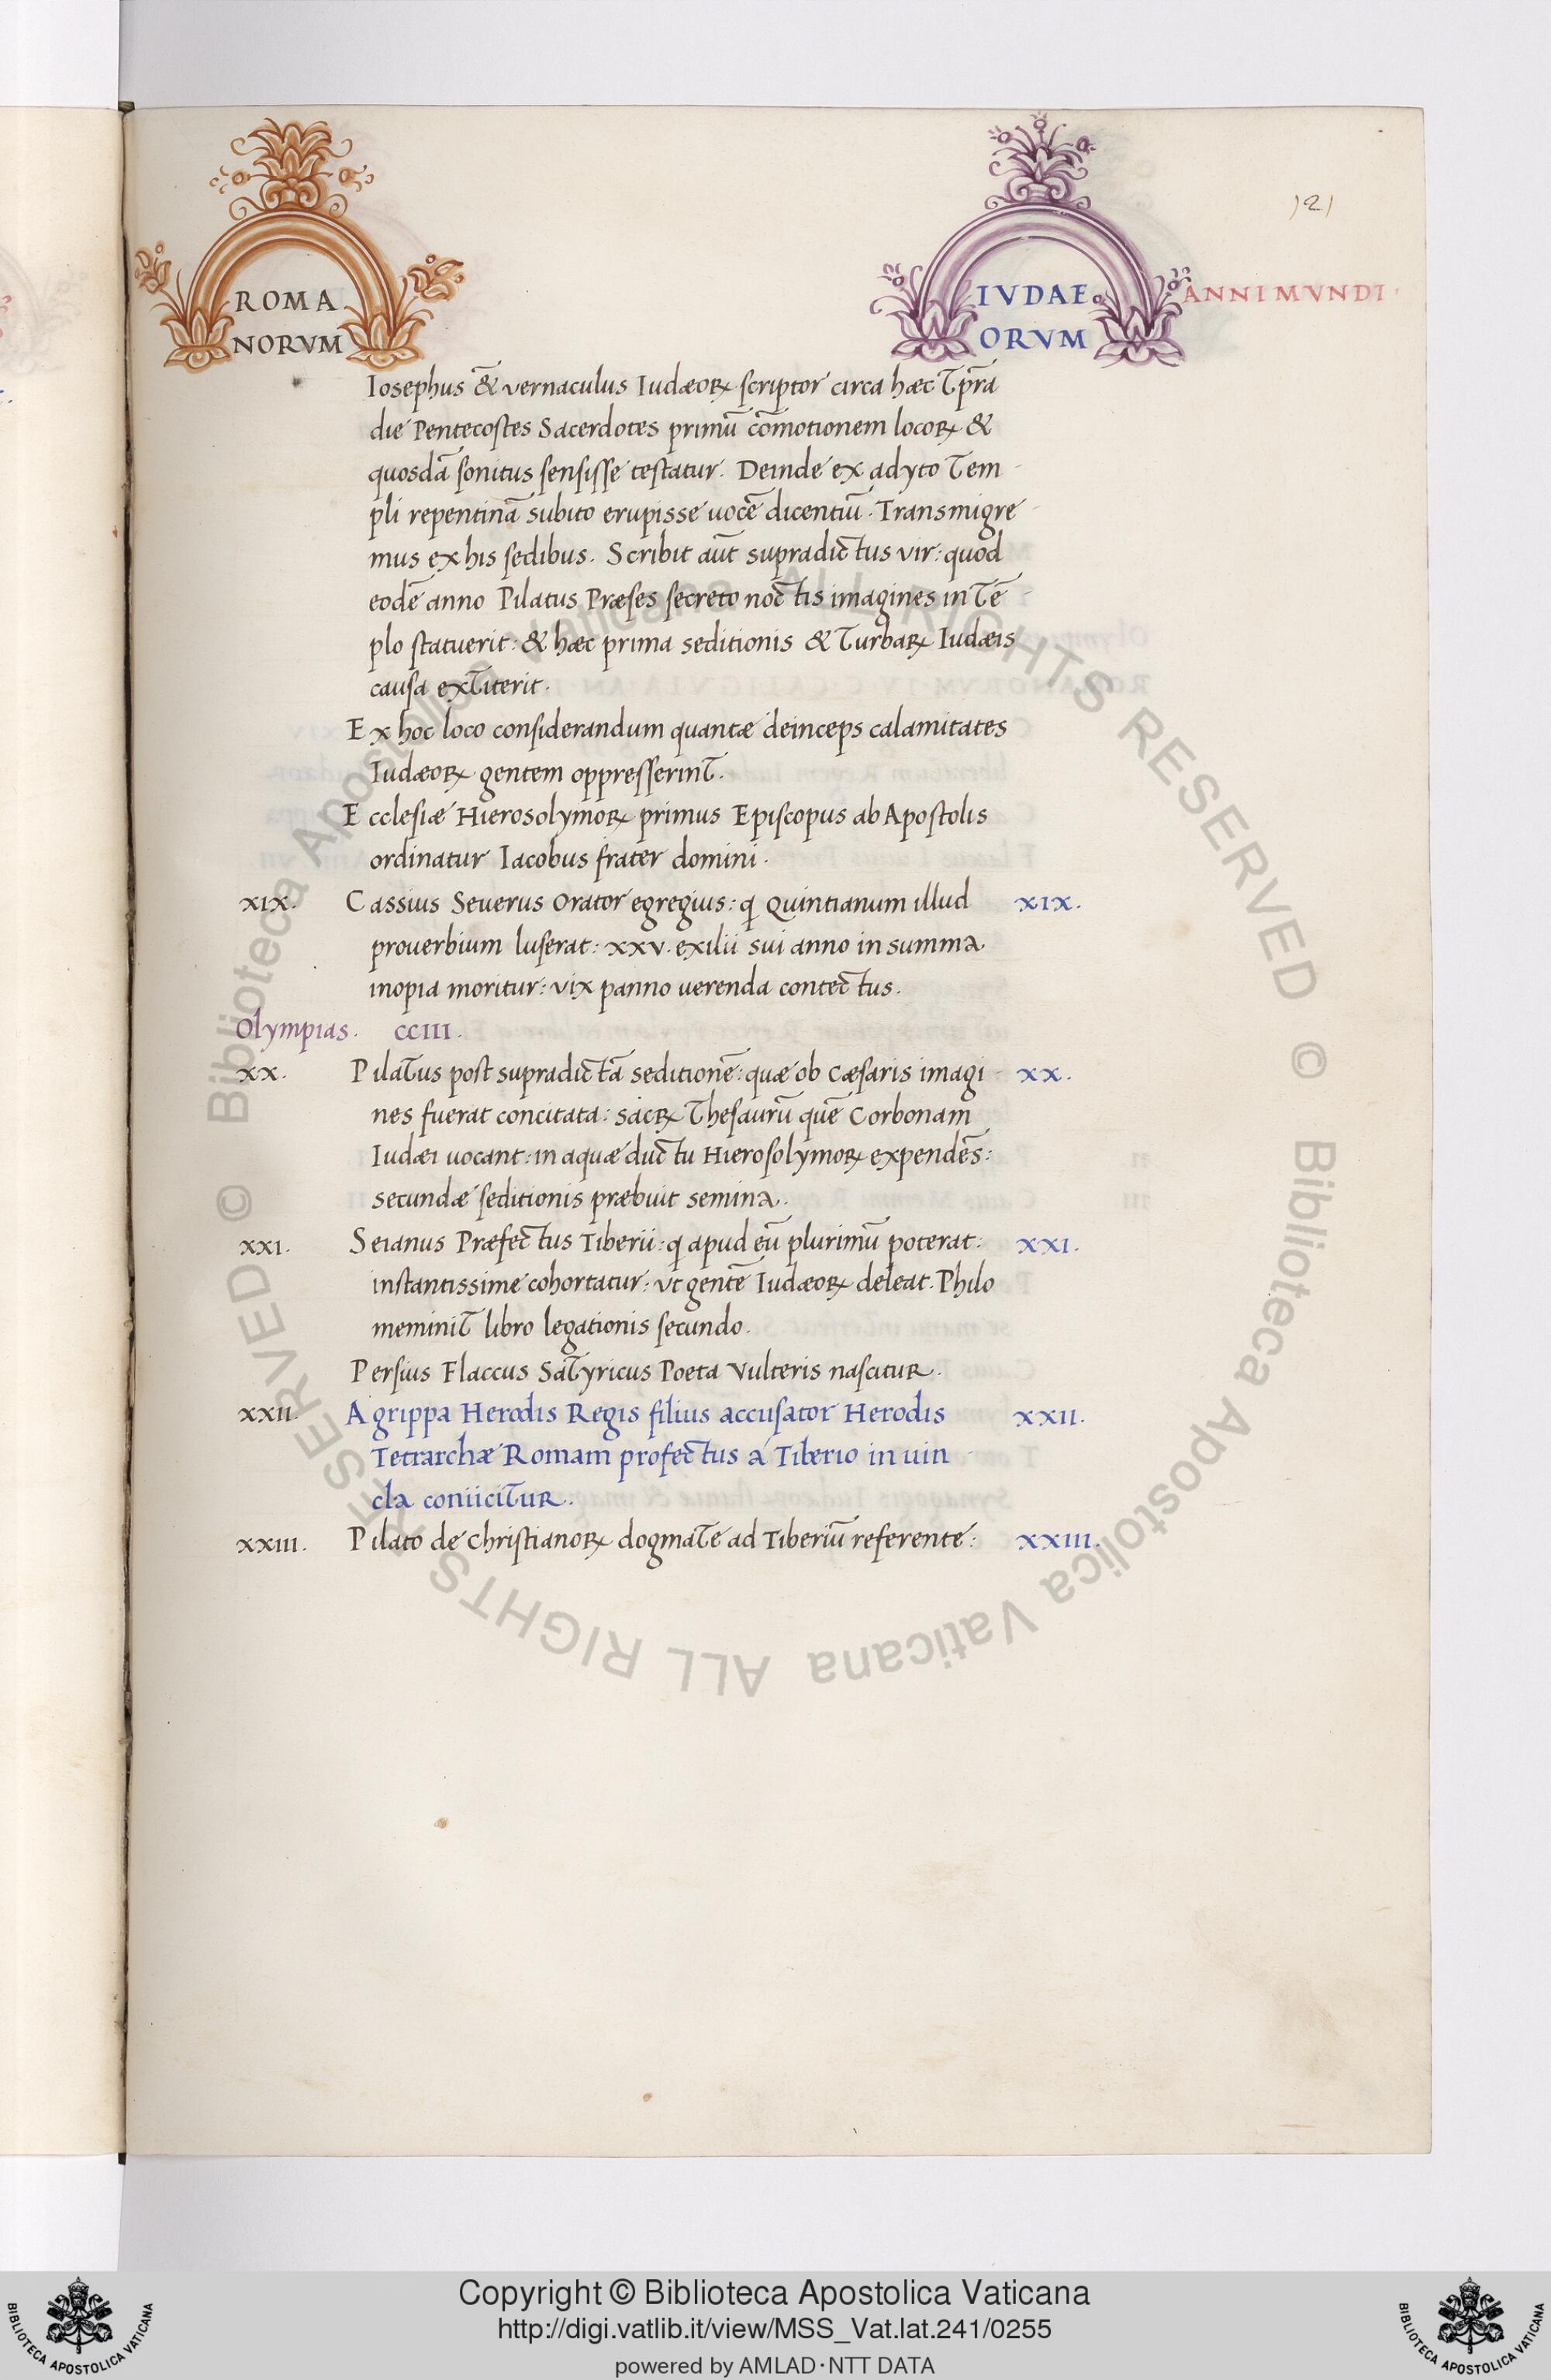 121
ROMA IVDAE ANNI MVNDI
NORVM ORVM
Iosephus &̃ vernaculus Iudæoꝝ scriptor circa hæc tp̃ra
die Pentecostes Sacerdotes primũ cõmotionem locoꝝ &
quosdã sonitus sensisse testatur. Deinde ex adyto Tem-
pli repentinã subito erupisse uocẽ dicentiũ. Transmigre-
mus ex his sedibus. Scribit aũt supradictus vir: quod
eodẽ anno Pilatus Præses secreto noctis imagines in Tẽ-
plo statuerit: & hæc prima seditionis & turbaꝝ Iudæis
causa extiterit.
Ex hoc loco considerandum quantæ deinceps calamitates
Iudæoꝝ gentem oppresserint.
Ecclesiæ Hierosolymoꝝ primus Episcopus ab Apostolis
ordinatur Iacobus frater domini.
XIX. Cassius Seuerus Orator egregius: q̃ Quintianum illud XIX.
prouerbium luserat: xxv. exilii sui anno in summa
inopia moritur: vix panno uerenda contectus.
Olympias. CCIII.
XX. Pilatus post supradictã seditionẽ: quæ ob Cæsaris imagi- XX.
nes fuerat concitata: sacꝝ Thesaurũ quẽ Corbonam
Iudæi uocant: in aquæ ductu Hierosolymoꝝ expendẽs:
secundæ seditionis præbuit semina.
XXI. Seianus Præfectus Tiberii: q̃ apud eũ plurimũ poterat: XXI.
instantissime cohortatur: vt gentẽ Iudæoꝝ deleat. Philo
meminit libro legationis secundo.
Persius Flaccus Satyricus Poeta Vulteris nascitur.
XXII. Agrippa Herodis Regis filius accusator Herodis XXII.
Tetrarchæ Romam profectus á Tiberio in uin-
cla coniicitur.
XXIII. Pilato de christianoꝝ dogmate ad Tiberiũ referente: XXIII.
© Biblioteca Apostolica Vaticana ALL RIGHTS RESERVED
© Biblioteca Apostolica Vaticana ALL RIGHTS RESERVED
Copyright © Biblioteca Apostolica Vaticana
http://digi.vatlib.it/view/MSS_Vat.lat.241/0255
powered by AMLAD·NTT DATA
BIBLIOTECA APOSTOLICA VATICANA
BIBLIOTECA APOSTOLICA VATICANA